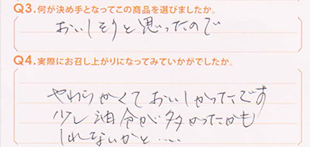 Q3.何が決め手となってこの商品を選びましたか。
おいしそうと思ったので
Q4.実際にお召し上がりになってみていかがでしたか。
やわらかくておいしかったです
少し油分が多かったかも
しれないかと……